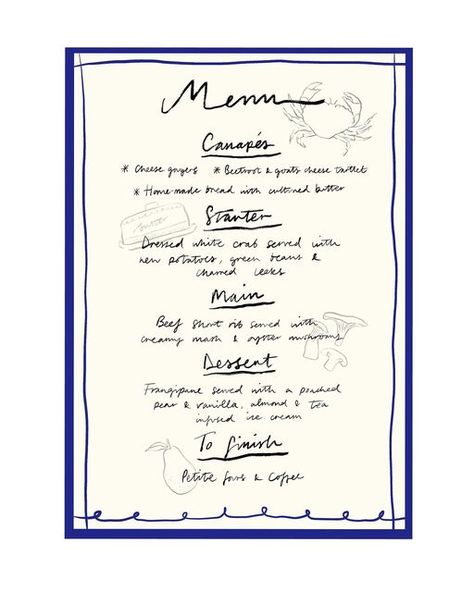 Menu
Canapés
* Cheese gougers * Beetroot & goats cheese tartlet
* Home-made bread with cultured butter
Starter
Butter
Dressed white crab served with
new potatoes, green beans &
charred leeks
Main
Beef Short rib served with
creamy mash & oyster mushrooms
Dessert
Frangipane served with a poached
pear & vanilla, almond & tea
infused ice cream
To finish
Petite fours & Coffee